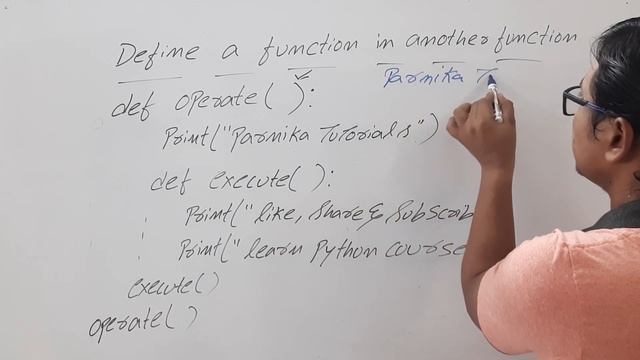 Define a function in another function
def operate( ):
Parmika T
Print("Parmika Tutorials")
def execute( ):
Print("like, Share & Subscrib
Print("learn Python course
execute( )
operate( )